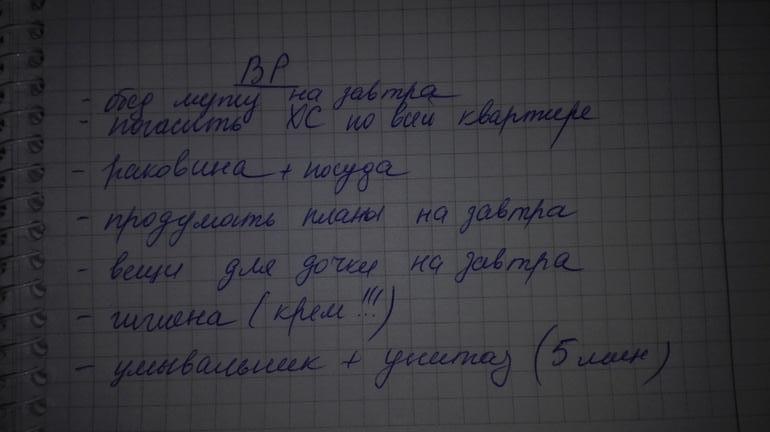 ВР
- обед мужу на завтра
- погасить ХС по всей квартире
- раковина + посуда
- продумать планы на завтра
- вещи для дочки на завтра
- гигиена (крем !!!)
- умывальник + унитаз (5 мин)